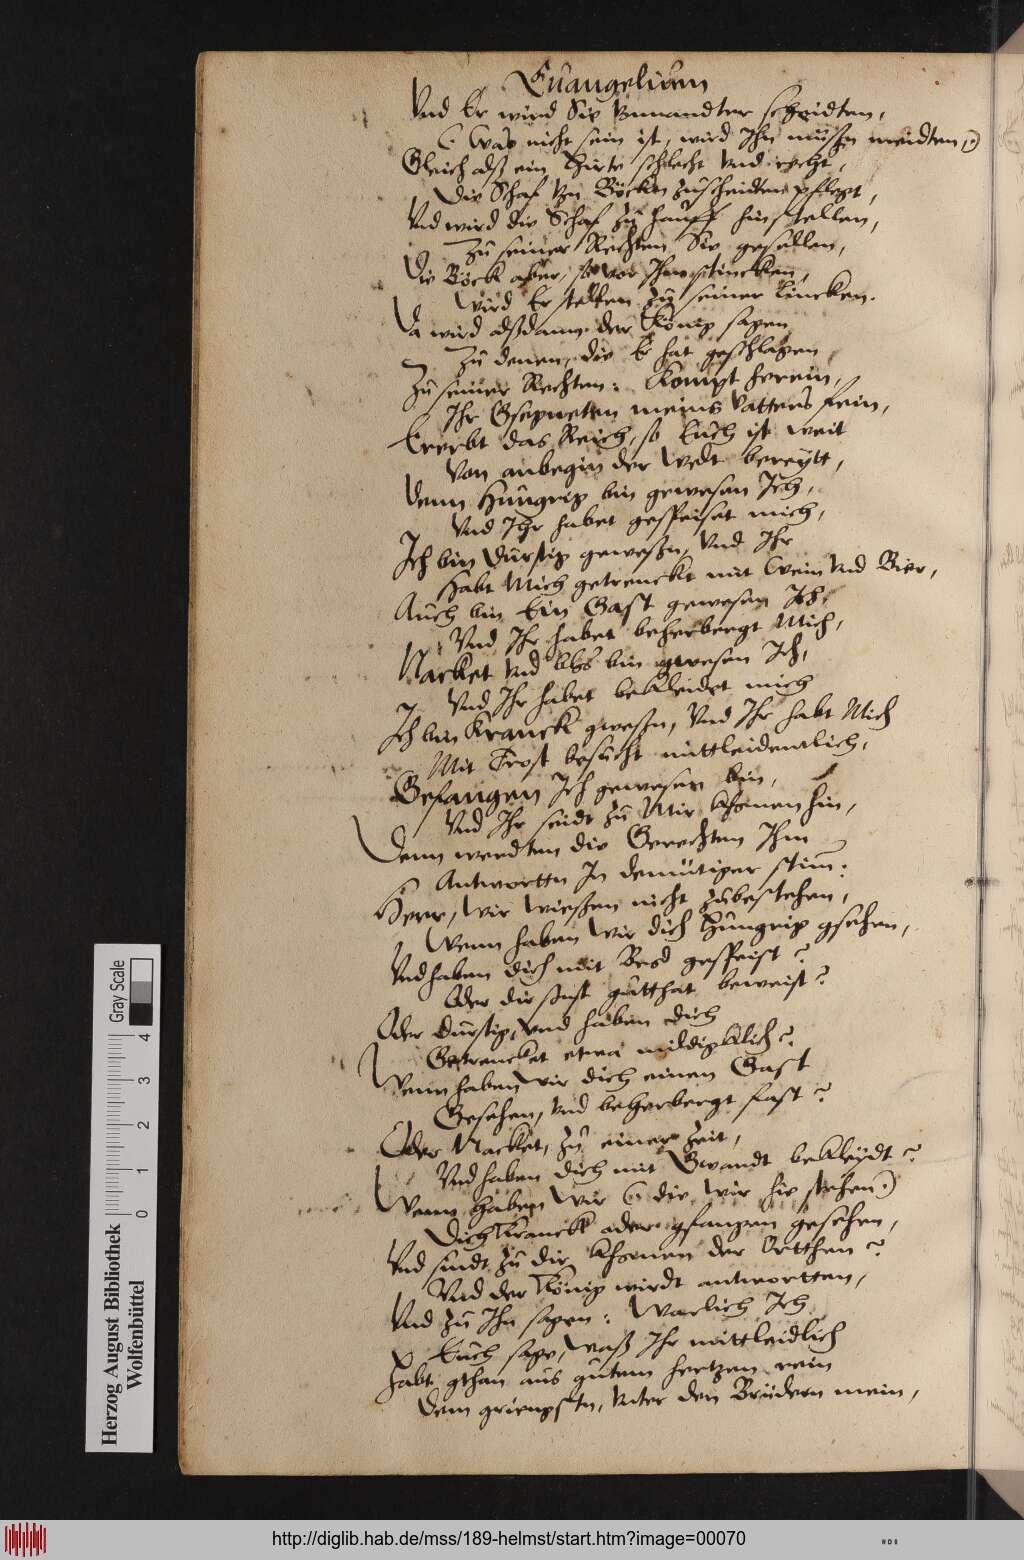 Euangelium
Vnd Er wird Sie vonnandter scheidten,
(Was nicht sein ist, wird Ihn müssen meidten,)
Gleich alß ein Hirte schlecht vnd recht,
Die Schaf von Böcken zuscheidten pflegt,
Vnd wird die Schaf zu hauff hinstellen,
Zu seiner Rechten Sie gesellen,
Die Böck aber, so vor Ihm stincken,
Wird Er stellen zu seiner Lincken.
Da wird alßdann der König sagen
Zu denen, die Er hat geschlagen
Zu seiner Rechten: Kompt herein,
Ihr Gsegneten meins Vatters fein,
Ererbt das Reich, so Euch ist weit
Von anbegin der Welt bereytt,
Denn Hungrig bin gewesen Ich,
Vnd Ihr habet gespeiset mich,
Ich bin Durstig gewesen, Vnd Ihr
Habt Mich getrenckt mit Wein vnd Bier,
Auch bin Ein Gast gewesen Ich,
Vnd Ihr habet beherbergt Mich,
Nacket vnd blos bin gwesen Ich,
Vnd Ihr habet bekleidet mich
Ich bin Kranck gwesen, Vnd Ihr habt Mich
Mit Trost besucht mittleidenlich,
Gefangen Ich gewesen bin,
Vnd Ihr seidt zu Mir khomen hin,
Denn werdten die Gerechten Ihm
Antwortten In demütiger stim:
Herr, Wir wießen nicht zubestehen,
Wenn haben Wir dich Hungrig gsehen,
Vnd haben dich mit gespeist?
Oder dir sunst gutthat beweist?
Oder durstig, vnd haben dich
Getrencket etwa mildigklich?
Wenn haben wir dich einen Gast
Gesehen, vnd beherbergt fast?
Oder Nacket, zu einer Zeit,
Vnd haben dich mit Gwandt bekleydt?
Wenn Haben Wir (die Wir hie stehen)
Dich Kranckh oder gfangen gesehen,
Vnd sindt zu dir khomen der Ortthen?
Vnd der König wirdt antwortten,
Vnd zu Ihn sagen: Warlich Ich
Euch sage, Waß Ihr mittleidlich
Habt gthan aus gutem hertzen rein
Dem gringsten, vnter den Brüdern mein,
Herzog August Bibliothek
Wolfenbüttel
0 1 2 3 4
Gray Scale
http://diglib.hab.de/mss/189-helmst/start.htm?image=00070